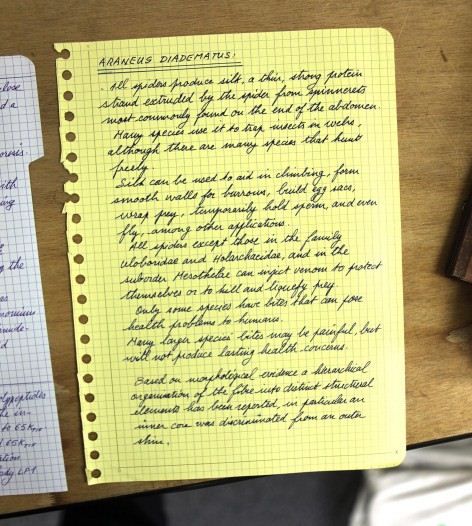 ARANEUS DIADEMATUS:
. All spiders produce silk, a thin, strong protein
strand extruded by the spider from spinnerets
most commonly found on the end of the abdomen.
Many species use it to trap insects in webs,
although there are many species that hunt
freely.
Silk can be used to aid in climbing, form
smooth walls for burrows, build egg sacs,
wrap prey, temporarily hold sperm, and even
fly, among other applications.
All spiders except those in the family
Uloboridae and Holarchaeidae, and in the
suborder Mesothelae can inject venom to protect
themselves or to kill and liquefy prey.
Only some species have bites that can pose
health problems to humans.
Many larger species' bites may be painful, but
will not produce lasting health concerns.
Based on morphological evidence a hierarchical
organisation of the fibre into distinct structural
elements has been reported, in particular an
inner core was discriminated from an outer
skin.
and a
with
the
to 65K